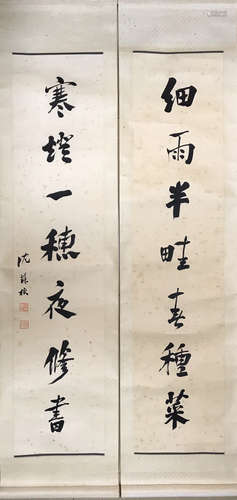 细雨半畦春種菜
寒燈一穗夜修書
沈